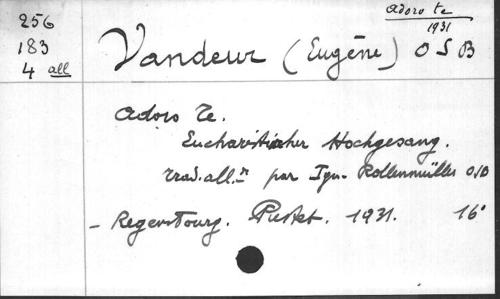 256
183
4 all
adoro te
1931
Vandeur (Eugène) OSB
Adoro Te.
Eucharistischer Hochgesang.
trad. all.n par Ign. Rollenmüller OSB
- Regensbourg. Pustet. 1931. 16°